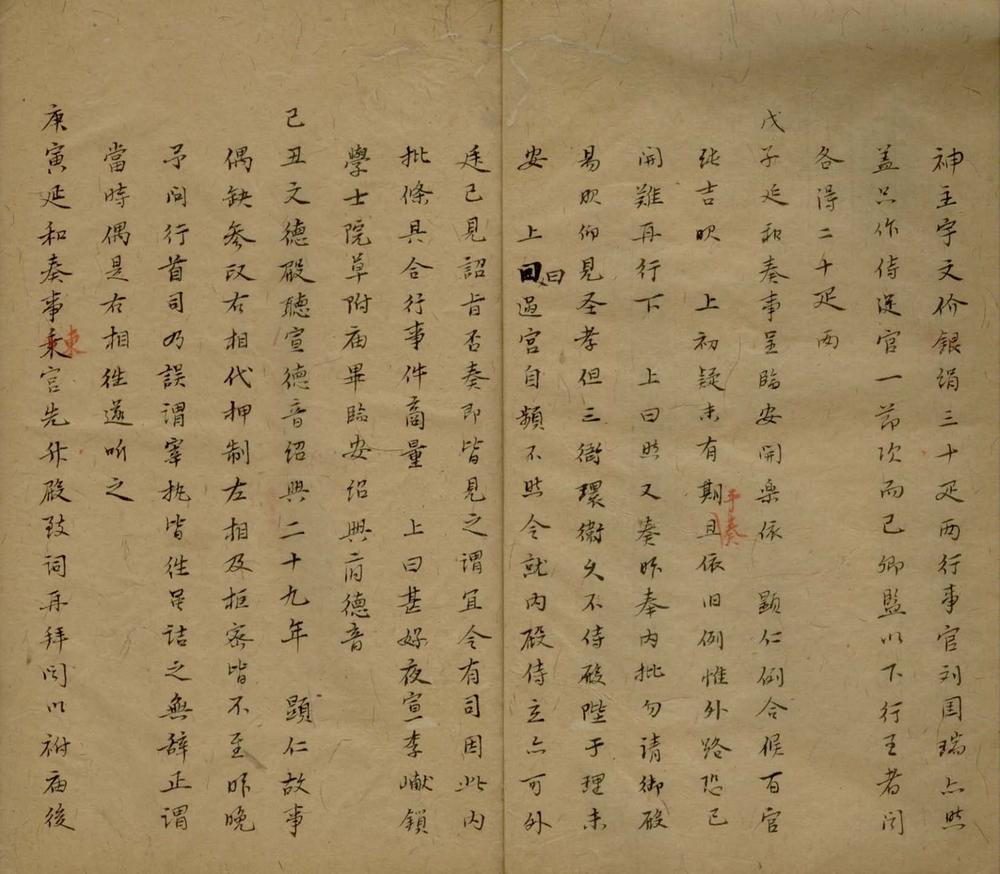 神主字文价銀絹三十疋两行事官刘国瑞亦然
盖只作侍從官一節次而已卿監以下行王者问
各得二十疋两
戊子延和奏事呈臨安開樂依　顕仁例合候百官
純吉吹　上初疑未有期且依旧例惟外路恐已
予奏
開難再行下　上曰然又奏昨奉内批勿請御殿
易吹仰見圣孝但三衙環衛久不侍殿陛于理未
安　上回過宮自頻不然今就内殿侍立亦可外
曰
廷已見詔旨否奏即皆見之謂宜令有司因此内
批條具合行事件商量　上曰甚好夜宣李巘鎖
學士院草附庙畢臨安绍興府德音
己丑文德殿聽宣德音绍興二十九年　顕仁故事
偶缺参政右相代押制左相及枢密皆不至昨晚
予问行首司乃誤謂宰执皆徃是詰之無辞正謂
當時偶是右相徃遂听之
庚寅延和奏事乗官先升殿致词再拜问以祔庙後
東